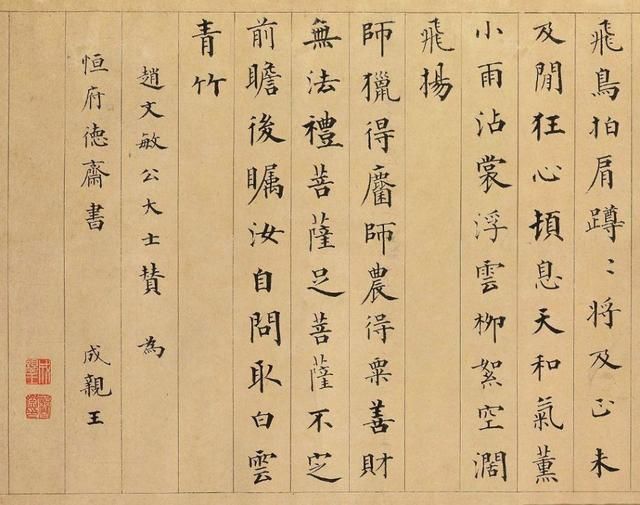 飛鳥拍肩蹲〻將及正未
及閒狂心頓息天和氣薰
小雨沾裳浮雲柳絮空濶
飛揚
師獵得麕師農得粟善財
無法禮菩薩足菩薩不定
前瞻後矚汝自問取白雲
青竹
趙文敏公大士賛 為
恒府德齋書 成親王